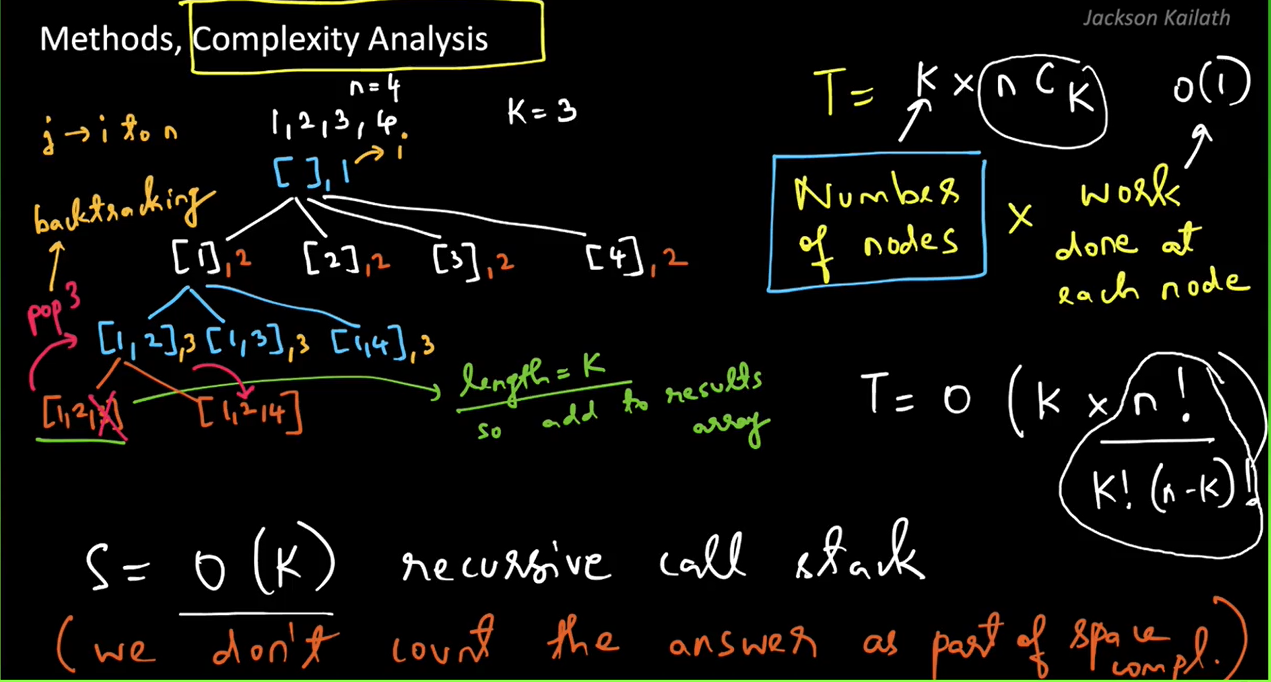 Jackson Kailath
Methods, Complexity Analysis
n=4
1,2,3,4
K = 3
j → i to n
[ ],1 → i
backtracking
[1],2 [2],2 [3],2 [4],2
pop 3
[1,2],3 [1,3],3 [1,4],3
[1,2,3] [1,2,4]
length = K
so add to results
array
T = K × n C K
O(1)
Number
of nodes
×
work
done at
each node
T = O (K × n!
K! (n-K)!
S = O (K) recursive call stack
(we don't count the answer as part of space
compl.)